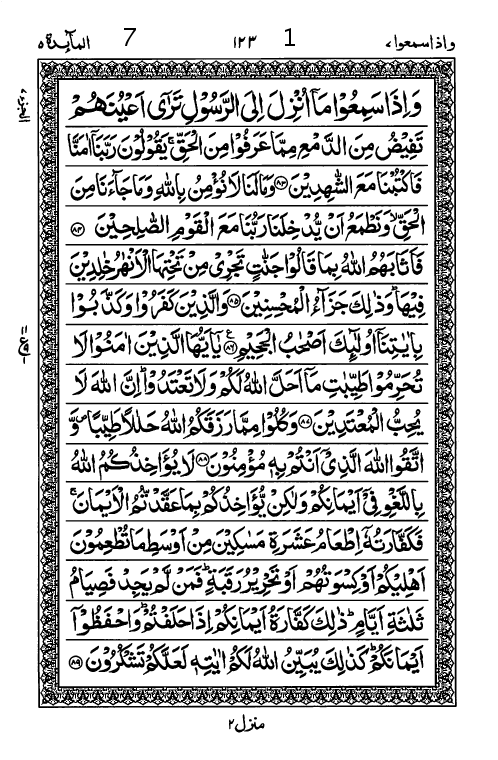 واذاسمعوا، 1 ١٢٣ 7 المآىِدة ٥
وَاِذَا سَمِعُوْا مَاۤ اُنْزِلَ اِلَى الرَّسُوْلِ تَرٰۤى اَعْيُنَهُمْ
تَفِيْضُ مِنَ الدَّمْعِ مِمَّا عَرَفُوْا مِنَ الْحَقِّ ۚ يَقُوْلُوْنَ رَبَّنَاۤ اٰمَنَّا
فَاكْتُبْنَا مَعَ الشّٰهِدِيْنَ ۝٨٣ وَمَا لَنَا لَا نُؤْمِنُ بِاللّٰهِ وَمَا جَآءَنَا مِنَ
الْحَقِّ ۙ وَنَطْمَعُ اَنْ يُّدْخِلَنَا رَبُّنَا مَعَ الْقَوْمِ الصّٰلِحِيْنَ ۝٨٤
فَاَثَابَهُمُ اللّٰهُ بِمَا قَالُوْا جَنّٰتٍ تَجْرِيْ مِنْ تَحْتِهَا الْاَنْهٰرُ خٰلِدِيْنَ
فِيْهَا ؕ وَذٰلِكَ جَزَآءُ الْمُحْسِنِيْنَ ۝٨٥ وَالَّذِيْنَ كَفَرُوْا وَكَذَّبُوْا
بِاٰيٰتِنَاۤ اُولٰٓئِكَ اَصْحٰبُ الْجَحِيْمِ ۝٨٦ ع يٰۤاَيُّهَا الَّذِيْنَ اٰمَنُوْا لَا
تُحَرِّمُوْا طَيِّبٰتِ مَاۤ اَحَلَّ اللّٰهُ لَكُمْ وَلَا تَعْتَدُوْا ؕ اِنَّ اللّٰهَ لَا
يُحِبُّ الْمُعْتَدِيْنَ ۝٨٧ وَكُلُوْا مِمَّا رَزَقَكُمُ اللّٰهُ حَلٰلًا طَيِّبًا ۪ وَّ
اتَّقُوا اللّٰهَ الَّذِيْۤ اَنْتُمْ بِهٖ مُؤْمِنُوْنَ ۝٨٨ لَا يُؤَاخِذُكُمُ اللّٰهُ
بِاللَّغْوِ فِيْۤ اَيْمَانِكُمْ وَلٰكِنْ يُّؤَاخِذُكُمْ بِمَا عَقَّدْتُّمُ الْاَيْمَانَ ۚ
فَكَفَّارَتُهٗۤ اِطْعَامُ عَشَرَةِ مَسٰكِيْنَ مِنْ اَوْسَطِ مَا تُطْعِمُوْنَ
اَهْلِيْكُمْ اَوْ كِسْوَتُهُمْ اَوْ تَحْرِيْرُ رَقَبَةٍ ؕ فَمَنْ لَّمْ يَجِدْ فَصِيَامُ
ثَلٰثَةِ اَيَّامٍ ؕ ذٰلِكَ كَفَّارَةُ اَيْمَانِكُمْ اِذَا حَلَفْتُمْ ؕ وَاحْفَظُوْۤا
اَيْمَانَكُمْ ؕ كَذٰلِكَ يُبَيِّنُ اللّٰهُ لَكُمْ اٰيٰتِهٖ لَعَلَّكُمْ تَشْكُرُوْنَ ۝٨٩
منزل ٢